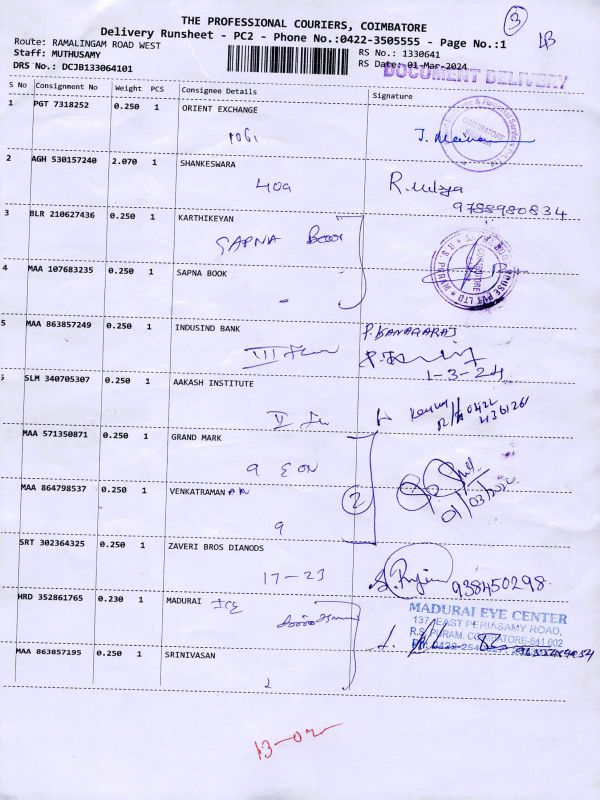 THE PROFESSIONAL COURIERS, COIMBATORE
Delivery Runsheet - PC2 - Phone No.:0422-3505555 - Page No.:1
3
Route: RAMALINGAM ROAD WEST
Staff: MUTHUSAMY
DRS No.: DCJB133064101
RS No.: 1330641
RS Date: 01-Mar-2024
DOCUMENT DELIVERY
S No Consignment No Weight PCS Consignee Details Signature
1 PGT 7318252 0.250 1 ORIENT EXCHANGE
COIMBATORE
2 AGH 530157240 2.070 1 SHANKESWARA
409
9788980834
3 BLR 210627436 0.250 1 KARTHIKEYAN
SAPNA Book
4 MAA 107683235 0.250 1 SAPNA BOOK
5 MAA 863857249 0.250 1 INDUSIND BANK
P. KANAGARAJ
III
1-3-24
SLM 340705307 0.250 1 AAKASH INSTITUTE
V
MAA 571350871 0.250 1 GRAND MARK
9
MAA 864798537 0.250 1 VENKATRAMAN
2
9
SRT 302364325 0.250 1 ZAVERI BROS DIANODS
17-23
938450298
HRD 352861765 0.230 1 MADURAI
MADURAI EYE CENTER
137, EAST PERIASAMY ROAD,
R.S. PURAM, COIMBATORE-641 002
MAA 863857195 0.250 1 SRINIVASAN